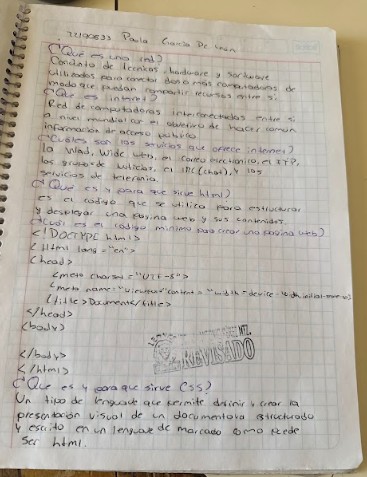 Paola García De León
¿Qué es una red?
Conjunto de técnicas, hardware y software
utilizados para conectar dos o más computadoras de
modo que puedan compartir recursos entre sí.
¿Qué es internet?
Red de computadoras interconectadas entre sí
a nivel mundial con el objetivo de hacer común
información de acceso público
¿Cuáles son los servicios que ofrece internet?
la Word, Wide web, el correo electronico, el FTP,
los grupos de noticias, el IRC (chat), y los
servicios de telefonía.
¿Qué es y para que sirve html?
es el código que se utiliza para estructurar
y desplegar una pagina web y sus contenidos.
¿Cuál es el código mínimo para crear una pagina web?
<!DOCTYPE html>
<html lang="en">
<head>
<meta charset="UTF-8">
<meta name="viewport" content="width=device-width, initial-
<title>Document</title>
</head>
<body>
</body>
</html>
REVISADO
¿Qué es y para que sirve CSS?
Un tipo de lenguaje que permite definir y crear la
presentación visual de un documento estructurado
y escrito en un lenguaje de marcado como puede
ser html.